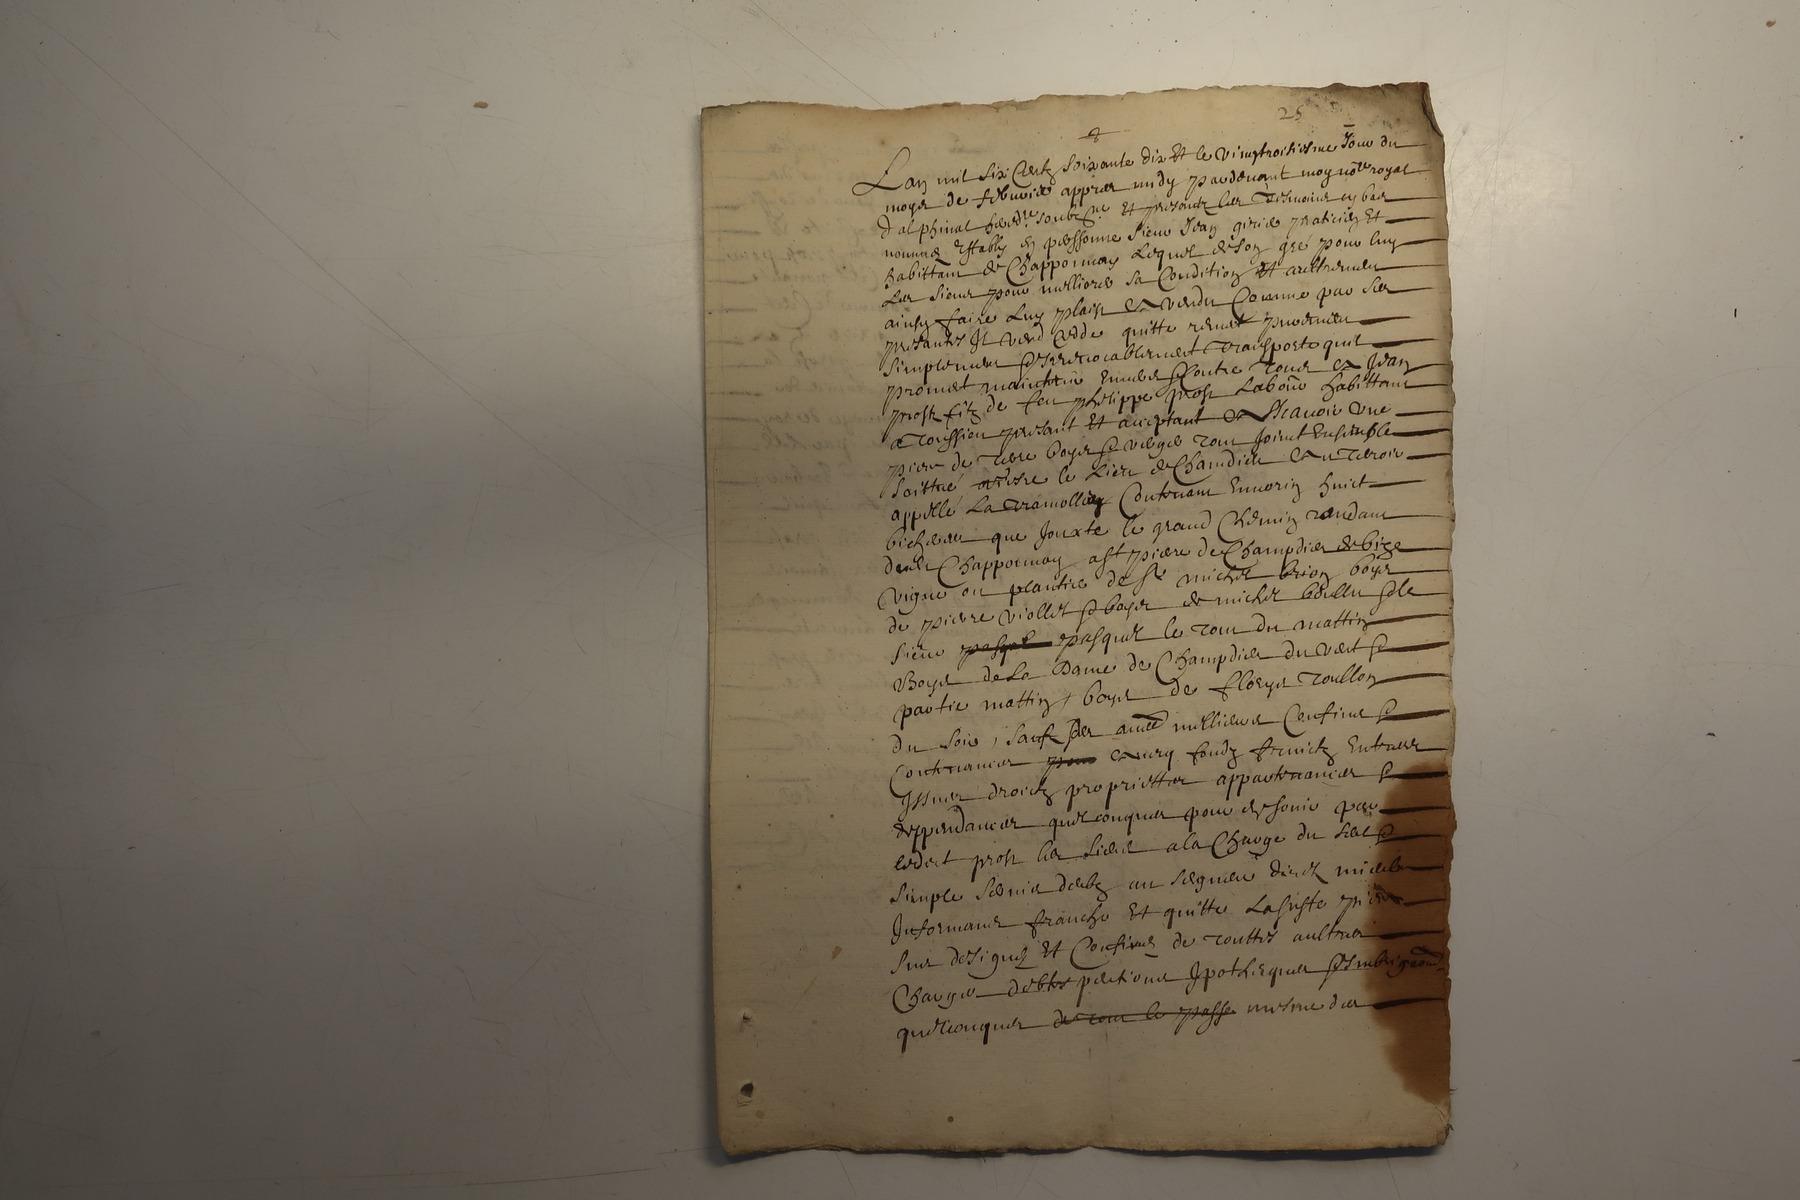 25
Lan mil six Centz soixante dix Et le vingtroisiesme Jour du
moys de febvrier appres midy pardevant moy no.re royal
dalphinal hered.re soub.ne Et presentz les tesmoins cy bas
nommes Estably En personne sieur Jean praticien Et
habittant de Chapponnay Lequel de son gré pour luy
Les siens pour melliorer sa Condition Et aultrement
ainsy faire luy plaist a vendu Comme par ses
presantes Il vend cedde quitte remet purement
simplement & irrevocablement transporte quil
promet maintenir Envers & Contre tous a Jean
prost filz de feu phelippe prost Labour habittant
a toussieu presant Et acceptant a scavoir une
piece de terre boys & verger tout Joint Ensemble
scittué le Lieu de Chandieu au terroir
appellé La Contenant Environ huict
bicherees que Jouxte le grand Chemin tendant
Chapponnay a st pierre de Champdieu de bize
vigne ou plantier de sr michel boys
de pierre viollet & boys de michel & le
sieur pasquet le tout du mattin
Boys de La Dame de Champdieu du vent &
partie mattin boys de
du soir, sauf ses meillieurs Confins &
Contenances avecq fondz fruictz Entrees
Issues droictz proprietter appartenances &
deppendances quelconques pour par
ledict prost les siens a la Charge du seul &
simple servis au segneur direct
franche Et quitte Laditte piece
sus designé Et Confiné de touttes aultres
Charges debtes pentions Ipotheques &
quelconques de tout le passe mesme des